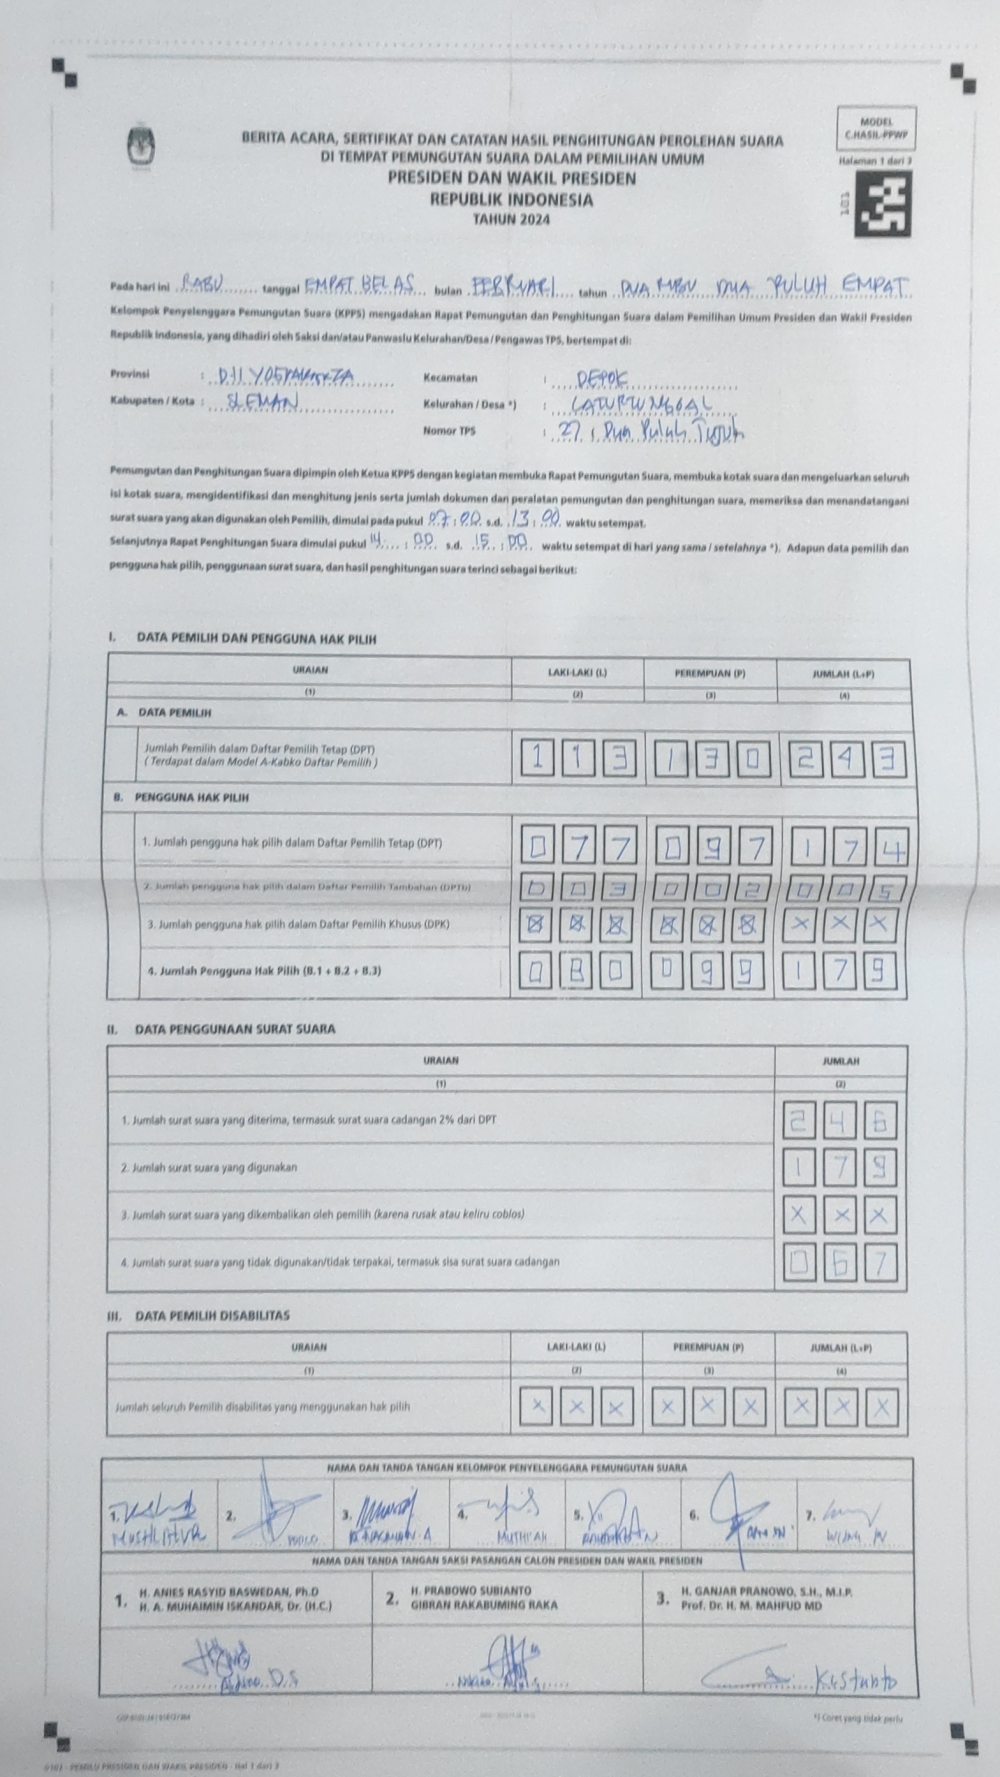 MODEL
C.HASIL-PPWP
Halaman 1 dari 3
BERITA ACARA, SERTIFIKAT DAN CATATAN HASIL PENGHITUNGAN PEROLEHAN SUARA
DI TEMPAT PEMUNGUTAN SUARA DALAM PEMILIHAN UMUM
PRESIDEN DAN WAKIL PRESIDEN
REPUBLIK INDONESIA
TAHUN 2024
101
Pada hari ini RABU tanggal EMPAT BELAS bulan FEBRUARI tahun DUA RIBU DUA PULUH EMPAT
Kelompok Penyelenggara Pemungutan Suara (KPPS) mengadakan Rapat Pemungutan dan Penghitungan Suara dalam Pemilihan Umum Presiden dan Wakil Presiden
Republik Indonesia, yang dihadiri oleh Saksi dan/atau Panwaslu Kelurahan/Desa / Pengawas TPS, bertempat di:
Provinsi : DIY YOGYAKARTA Kecamatan : DEPOK
Kabupaten / Kota : SLEMAN Kelurahan / Desa *) : CATURTUNGGAL
Nomor TPS : 27, Dua Puluh Tujuh
Pemungutan dan Penghitungan Suara dipimpin oleh Ketua KPPS dengan kegiatan membuka Rapat Pemungutan Suara, membuka kotak suara dan mengeluarkan seluruh
isi kotak suara, mengidentifikasi dan menghitung jenis serta jumlah dokumen dan peralatan pemungutan dan penghitungan suara, memeriksa dan menandatangani
surat suara yang akan digunakan oleh Pemilih, dimulai pada pukul 07 : 00 s.d. 13 : 00 waktu setempat.
Selanjutnya Rapat Penghitungan Suara dimulai pukul 14 : 00 s.d. 15 : 00 waktu setempat di hari yang sama / setelahnya *). Adapun data pemilih dan
pengguna hak pilih, penggunaan surat suara, dan hasil penghitungan suara terinci sebagai berikut:
I. DATA PEMILIH DAN PENGGUNA HAK PILIH
URAIAN LAKI-LAKI (L) PEREMPUAN (P) JUMLAH (L+P)
(1) (2) (3) (4)
A. DATA PEMILIH
Jumlah Pemilih dalam Daftar Pemilih Tetap (DPT) 1 1 3 1 3 0 2 4 3
( Terdapat dalam Model A-Kabko Daftar Pemilih )
B. PENGGUNA HAK PILIH
1. Jumlah pengguna hak pilih dalam Daftar Pemilih Tetap (DPT) 0 7 7 0 9 7 1 7 4
2. Jumlah pengguna hak pilih dalam Daftar Pemilih Tambahan (DPTb) 0 0 3 0 0 2 0 0 5
3. Jumlah pengguna hak pilih dalam Daftar Pemilih Khusus (DPK) X X X X X X X X X
4. Jumlah Pengguna Hak Pilih (B.1 + B.2 + B.3) 0 8 0 0 9 9 1 7 9
II. DATA PENGGUNAAN SURAT SUARA
URAIAN JUMLAH
(1) (2)
1. Jumlah surat suara yang diterima, termasuk surat suara cadangan 2% dari DPT 2 4 6
2. Jumlah surat suara yang digunakan 1 7 9
3. Jumlah surat suara yang dikembalikan oleh pemilih (karena rusak atau keliru coblos) X X X
4. Jumlah surat suara yang tidak digunakan/tidak terpakai, termasuk sisa surat suara cadangan 0 6 7
III. DATA PEMILIH DISABILITAS
URAIAN LAKI-LAKI (L) PEREMPUAN (P) JUMLAH (L+P)
(1) (2) (3) (4)
Jumlah seluruh Pemilih disabilitas yang menggunakan hak pilih X X X X X X X X X
NAMA DAN TANDA TANGAN KELOMPOK PENYELENGGARA PEMUNGUTAN SUARA
1. 2. 3. 4. MUTHI'AH 5. 6. 7.
NAMA DAN TANDA TANGAN SAKSI PASANGAN CALON PRESIDEN DAN WAKIL PRESIDEN
1. H. ANIES RASYID BASWEDAN, Ph.D
H. A. MUHAIMIN ISKANDAR, Dr. (H.C.)
2. H. PRABOWO SUBIANTO
GIBRAN RAKABUMING RAKA
3. H. GANJAR PRANOWO, S.H., M.I.P.
Prof. Dr. H. M. MAHFUD MD
D.S Kustanto
*) Coret yang tidak perlu
0101 - PEMILU PRESIDEN DAN WAKIL PRESIDEN - Hal 1 dari 3